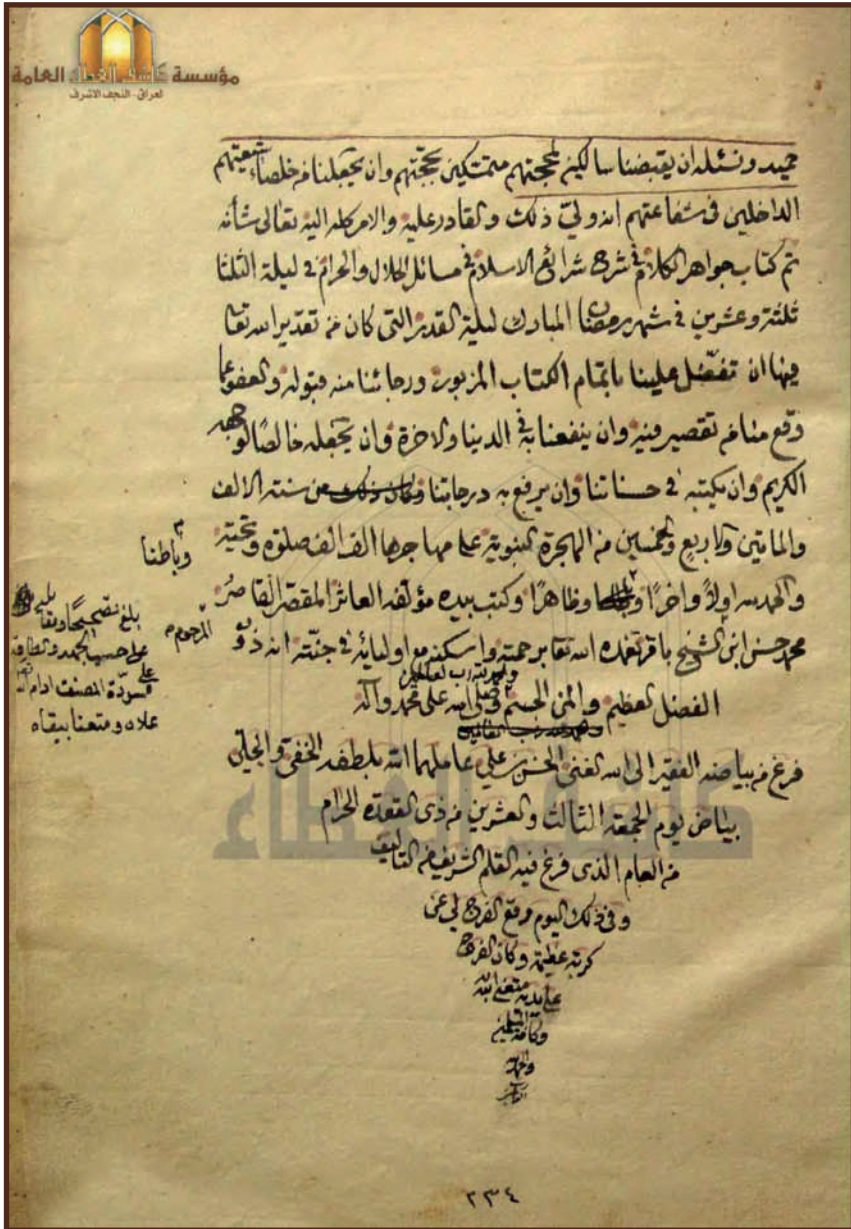 مؤسسة كاشف الغطاء العامة
العراق - النجف الاشرف
حميد ونسئله ان يقبضنا سالكين لمحجتهم متمسكين بحجتهم وان يجعلنا من خلصاء شيعتهم
الداخلين في شفاعتهم انه ولي ذلك والقادر عليه والامر كله اليه تعالى شأنه
تم كتاب جواهر الكلام في شرح شرائع الاسلام في مسائل الحلال والحرام في ليلة الثلثا
ثلثة وعشرين في شهر رمضان المبارك ليلة القدر التي كان من تقدير الله تعا
فيها ان تفضل علينا باتمام الكتاب المزبور ورجائنا منه قبوله والعفو عما
وقع منا من تقصير فيه وان ينفعنا به في الدنيا والاخرة وان يجعله خالصًا لوجهه
الكريم وان يكتبه في حسناتنا وان يرفع به درجاتنا وكان ذلك من سنته الالف
والماتين والاربع والخمسين من الهجرة النبوية على مهاجرها الف الف صلوة وتحية
والحمد لله اولاً واخرًا وظاهرًا وكتب بيده مؤلفه العاثر المقصر القاصر
وباطنا
محمد حسن ابن الشيخ باقر تغمده الله تعا برحمته واسكنه مع اوليائه في جنته انه ذو
المرحوم
الفضل العظيم والمن الجسيم وصلى الله على محمد وآله
والحمد لله رب العالمين
فرغ من بياضه الفقير الى الله الغني علي عاملهما الله بلطفه الخفي والجلي
بياض يوم الجمعة الثالث والعشرين من ذي القعدة الحرام
من العام الذي فرغ فيه القلم الشريف من التاليف
وفي ذلك اليوم وقع الفرج لي عن
كربة عظيمة وكان الفرج
على يديه متعني الله
وكافة
والحمد لله
بلغ تصحيحًا
على حسب الجهد والطاقة
على مسودة المصنف ادام الله
علاه ومتعنا ببقاه
٢٣٤
كاشف الغطاء